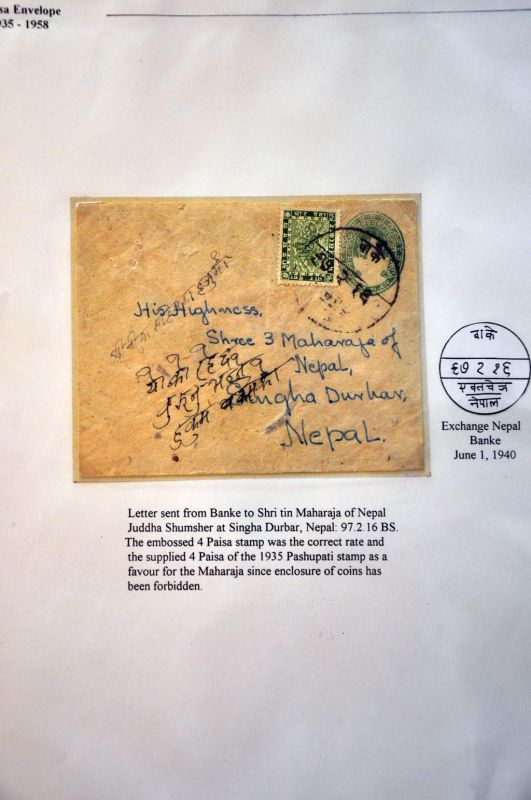 sa Envelope
35 - 1958
His Highness,
Shree 3 Maharaja of
Nepal,
Singha Durbar,
Nepal.
बाके
९७ २ १६
नेपाल
Exchange Nepal
Banke
June 1, 1940
Letter sent from Banke to Shri tin Maharaja of Nepal
Juddha Shumsher at Singha Durbar, Nepal: 97.2.16 BS.
The embossed 4 Paisa stamp was the correct rate and
the supplied 4 Paisa of the 1935 Pashupati stamp as a
favour for the Maharaja since enclosure of coins has
been forbidden.